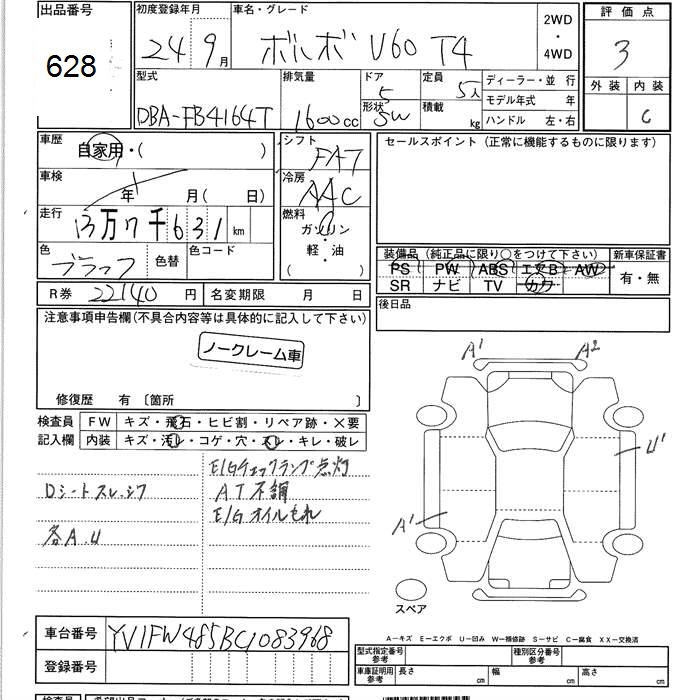 出品番号 初度登録年月 車名・グレード 2WD・4WD 評価点
628 24 9月 ボルボ V60 T4 3
型式 排気量 ドア 5 定員 5人 ディーラー・並行 外装 内装
DBA-FB4164T 1600cc 形状 SW 積載 kg モデル年式 年 C
ハンドル 左・右
車歴 自家用・( ) シフト FAT セールスポイント (正常に機能するものに限ります)
車検 年 月(日) 冷房 AAC
走行 13万7千631km 燃料 ガソリン・軽・油
色 ブラック 色替 色コード 装備品 (純正品に限り○をつけて下さい) 新車保証書
PS PW ABS エアB AW 有・無
SR ナビ TV カワ
R券 22140円 名変期限 月 日 後日品
注意事項申告欄(不具合内容等は具体的に記入して下さい)
ノークレーム車
A1 A2
修復歴 有 〔箇所 〕
検査員 FW キズ・飛石・ヒビ割・リペア跡・×要
記入欄 内装 キズ・汚レ・コゲ・穴・スレ・キレ・破レ
U1
E/Gチェックランプ点灯
Dシートスレ.シワ AT不調
E/Gオイルもれ
各A.U A1
スペア
車台番号 YV1FW485BC1083968
A-キズ E-エクボ U-凹み W-補修跡 S-サビ C-腐食 XX-交換済
登録番号 型式指定番号 参考 種別区分番号 参考
車庫証明用 参考 長さ cm 幅 cm 高さ cm